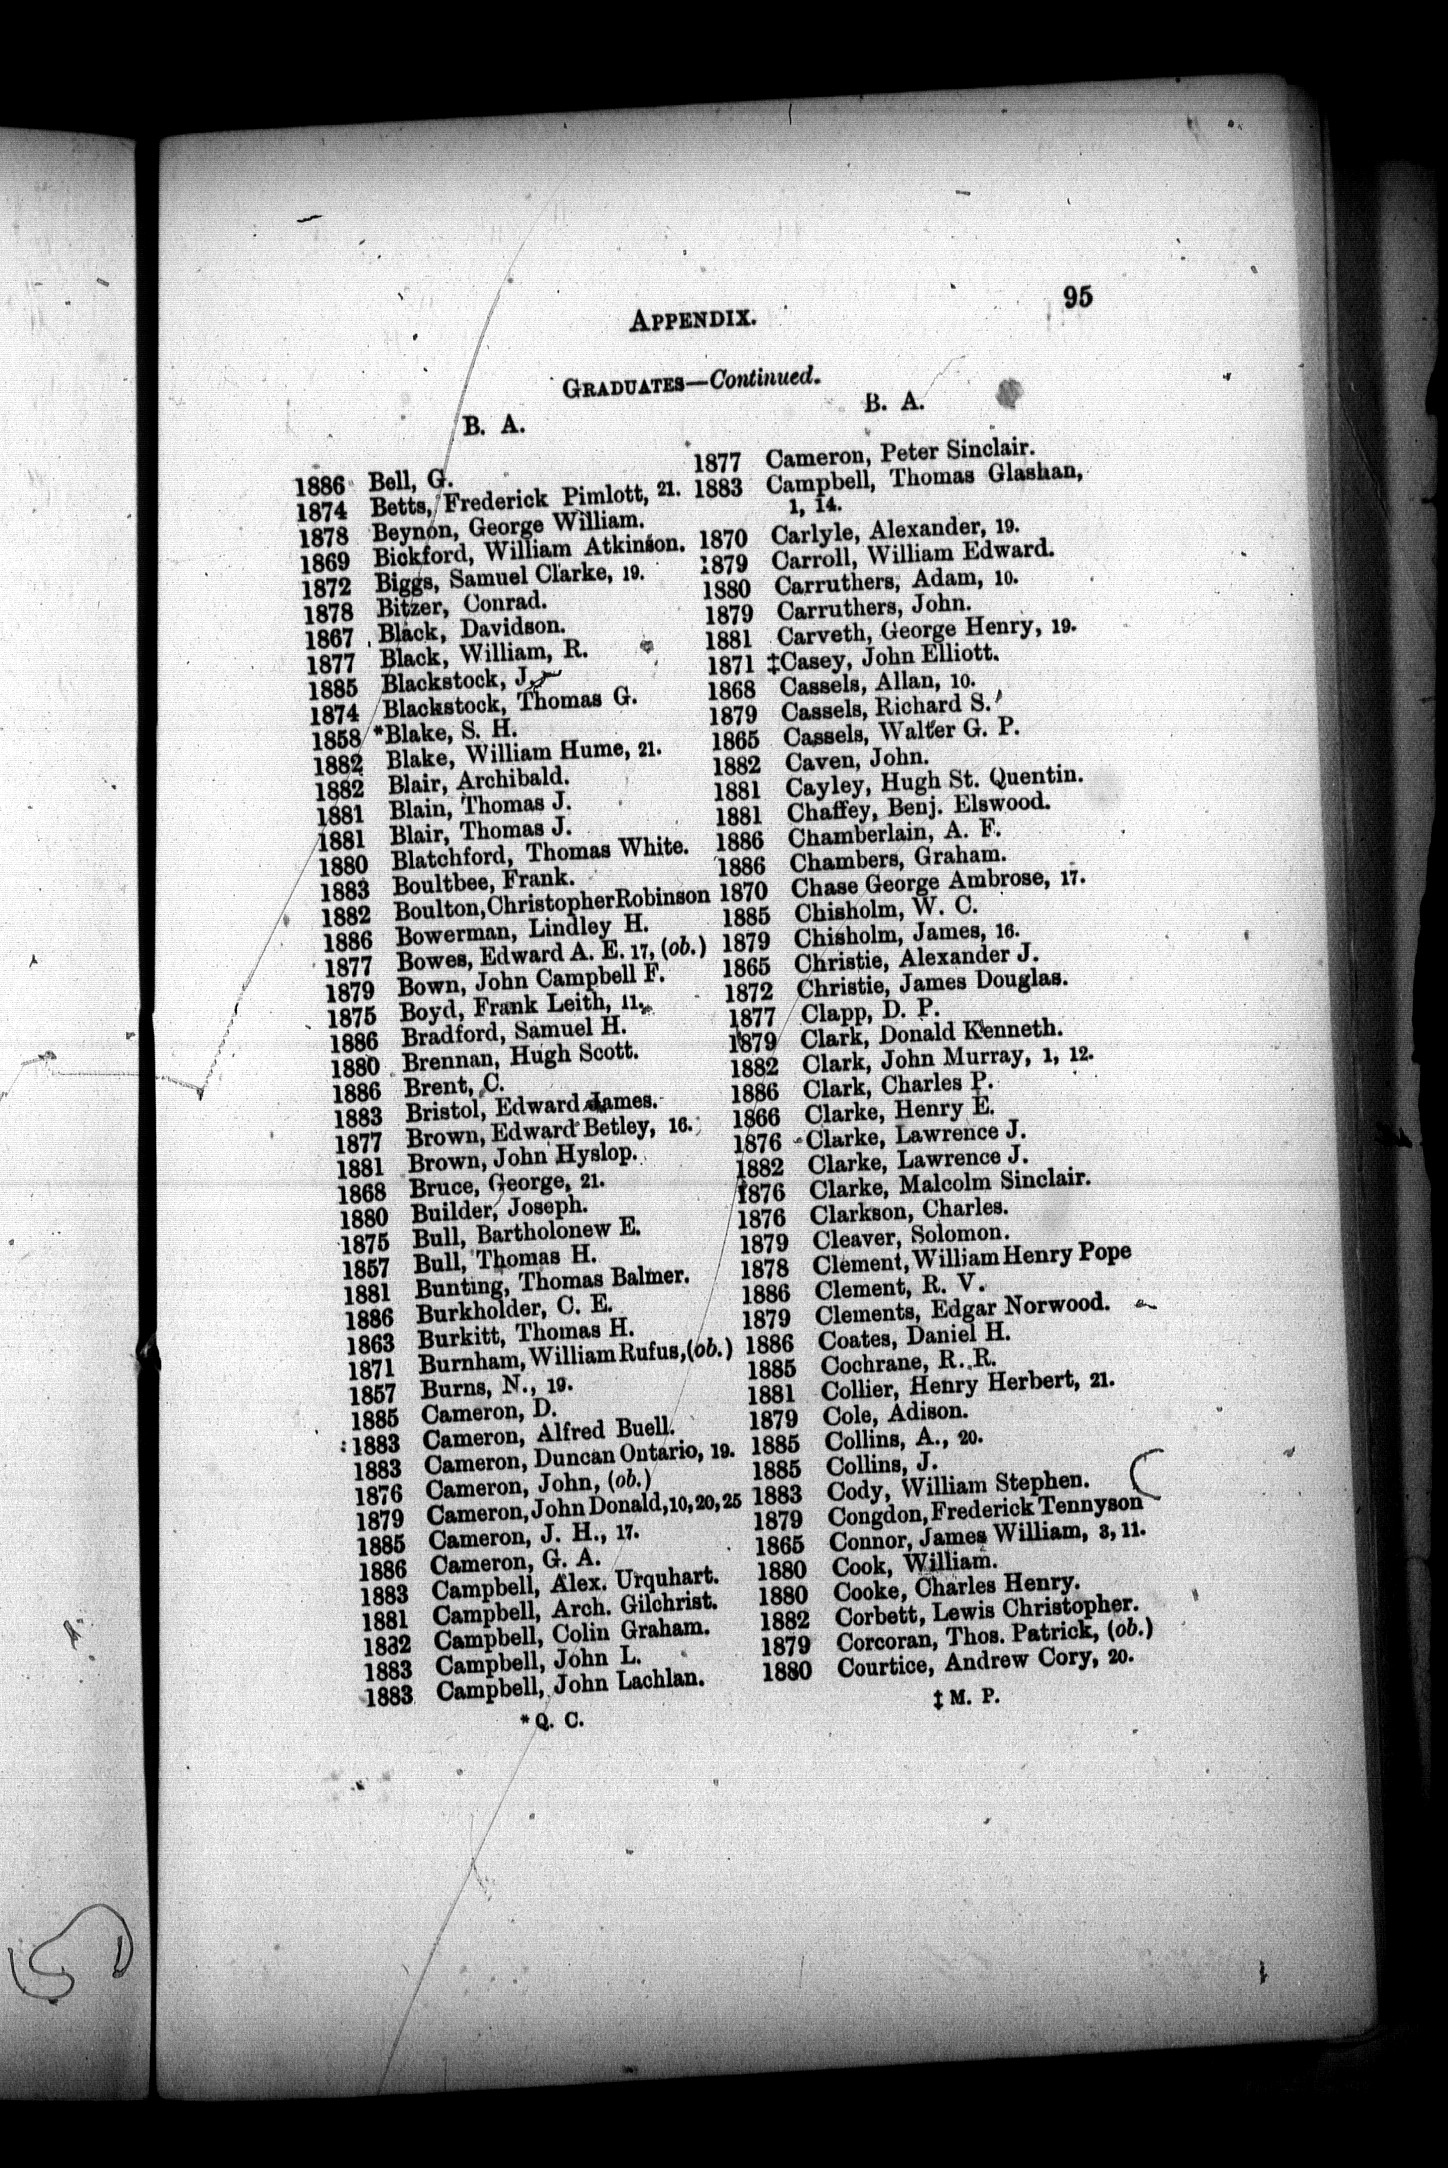 95
APPENDIX.
GRADUATES—Continued.
B. A.
1886 Bell, G.
1874 Betts, Frederick Pimlott, 21.
1878 Beynon, George William.
1869 Bickford, William Atkinson.
1872 Biggs, Samuel Clarke, 19.
1878 Bitzer, Conrad.
1867 Black, Davidson.
1877 Black, William, R.
1885 Blackstock, J.
1874 Blackstock, Thomas G.
1858 *Blake, S. H.
1882 Blake, William Hume, 21.
1882 Blair, Archibald.
1881 Blain, Thomas J.
1881 Blair, Thomas J.
1880 Blatchford, Thomas White.
1883 Boultbee, Frank.
1882 Boulton, Christopher Robinson
1886 Bowerman, Lindley H.
1877 Bowes, Edward A. E. 17, (ob.)
1879 Bown, John Campbell F.
1875 Boyd, Frank Leith, 11.
1886 Bradford, Samuel H.
1880 Brennan, Hugh Scott.
1886 Brent, C.
1883 Bristol, Edward James.
1877 Brown, Edward Betley, 16.
1881 Brown, John Hyslop.
1868 Bruce, George, 21.
1880 Builder, Joseph.
1875 Bull, Bartholonew E.
1857 Bull, Thomas H.
1881 Bunting, Thomas Balmer.
1886 Burkholder, C. E.
1863 Burkitt, Thomas H.
1871 Burnham, William Rufus, (ob.)
1857 Burns, N., 19.
1885 Cameron, D.
1883 Cameron, Alfred Buell.
1883 Cameron, Duncan Ontario, 19.
1876 Cameron, John, (ob.)
1879 Cameron, John Donald, 10, 20, 25
1885 Cameron, J. H., 17.
1886 Cameron, G. A.
1883 Campbell, Alex. Urquhart.
1881 Campbell, Arch. Gilchrist.
1882 Campbell, Colin Graham.
1883 Campbell, John L.
1883 Campbell, John Lachlan.
* Q. C.
B. A.
1877 Cameron, Peter Sinclair.
1883 Campbell, Thomas Glashan,
1, 14.
1870 Carlyle, Alexander, 19.
1879 Carroll, William Edward.
1880 Carruthers, Adam, 10.
1879 Carruthers, John.
1881 Carveth, George Henry, 19.
1871 ‡Casey, John Elliott.
1868 Cassels, Allan, 10.
1879 Cassels, Richard S.
1865 Cassels, Walter G. P.
1882 Caven, John.
1881 Cayley, Hugh St. Quentin.
1881 Chaffey, Benj. Elswood.
1886 Chamberlain, A. F.
1886 Chambers, Graham.
1870 Chase George Ambrose, 17.
1885 Chisholm, W. C.
1879 Chisholm, James, 16.
1865 Christie, Alexander J.
1872 Christie, James Douglas.
1877 Clapp, D. P.
1879 Clark, Donald Kenneth.
1882 Clark, John Murray, 1, 12.
1886 Clark, Charles P.
1866 Clarke, Henry E.
1876 Clarke, Lawrence J.
1882 Clarke, Lawrence J.
1876 Clarke, Malcolm Sinclair.
1876 Clarkson, Charles.
1879 Cleaver, Solomon.
1878 Clement, William Henry Pope
1886 Clement, R. V.
1879 Clements, Edgar Norwood.
1886 Coates, Daniel H.
1885 Cochrane, R. R.
1881 Collier, Henry Herbert, 21.
1879 Cole, Adison.
1885 Collins, A., 20.
1885 Collins, J.
1883 Cody, William Stephen.
1879 Congdon, Frederick Tennyson
1865 Connor, James William, 3, 11.
1880 Cook, William.
1880 Cooke, Charles Henry.
1882 Corbett, Lewis Christopher.
1879 Corcoran, Thos. Patrick, (ob.)
1880 Courtice, Andrew Cory, 20.
‡ M. P.